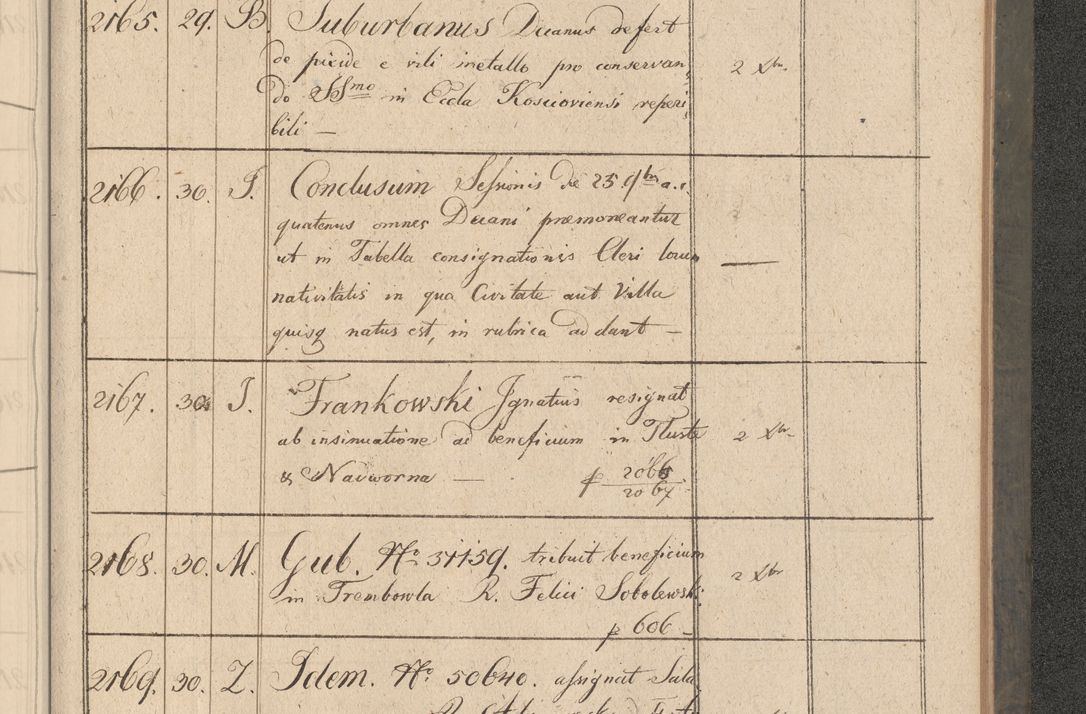 2165. 29. B. Suburbanus Decanus defert
de pixide e vili metallo pro conservan,
do SSmo in Eccla Koscioviensi reperi,
bili —
2 Xbr.
2166. 30. S. Conclusum Sessionis de 25 9br a.c.
quatenus omnes Decani praemoneantur
ut in Tabella consignationis Cleri locum
nativitatis in qua Civitate aut Villa
quisq natus est, in rubrica addant —
—
2167. 30 J. Frankowski Ignatius resignat
ab insinuatione ad beneficium in Tluste
& Nadworna — p 2066
2067.
2 Xbr.
2168. 30. M. Gub. No 51159. tribuit beneficium
in Trembowla R. Felici Sobolewski
p 606 —
2 Xbr
2169. 30. Z. Idem. No. 50640. assignat Sala